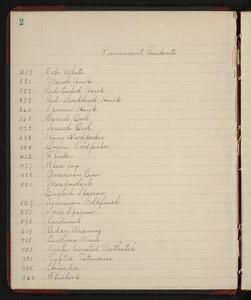 2
Permanent Residents
289 Bob White
331 Marsh Hawk
337 Red-tailed Hawk
339 Red-shouldered Hawk
360 Sparrow Hawk
368 Barred Owl
373 Screech Owl
393 Hairy Woodpecker
394 Downy Woodpecker
412 Flicker
477 Blue Jay
488 American Crow
501 Meadowlark
English Sparrow
529 American Goldfinch
Song Sparrow
593 Cardinal
619 Cedar Waxwing
718 Carolina Wren
White-breasted Nuthatch
731 Tufted Titmouse
735 Chickadee
766 Bluebird